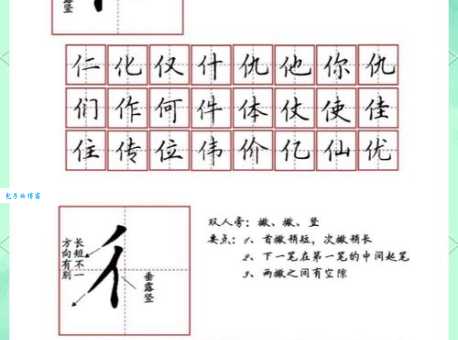 露竖
仁化仅什仇他你仇
们作何件体仗使佳
住传位伟价亿仙优
包子的博客
长短不一
方向有别
彳
垂露竖
双人旁：撇、撇、竖
要点：1、首撇稍短，次撇稍长
2、下一笔在第一笔的中间起笔
3、两撇之间有空隙